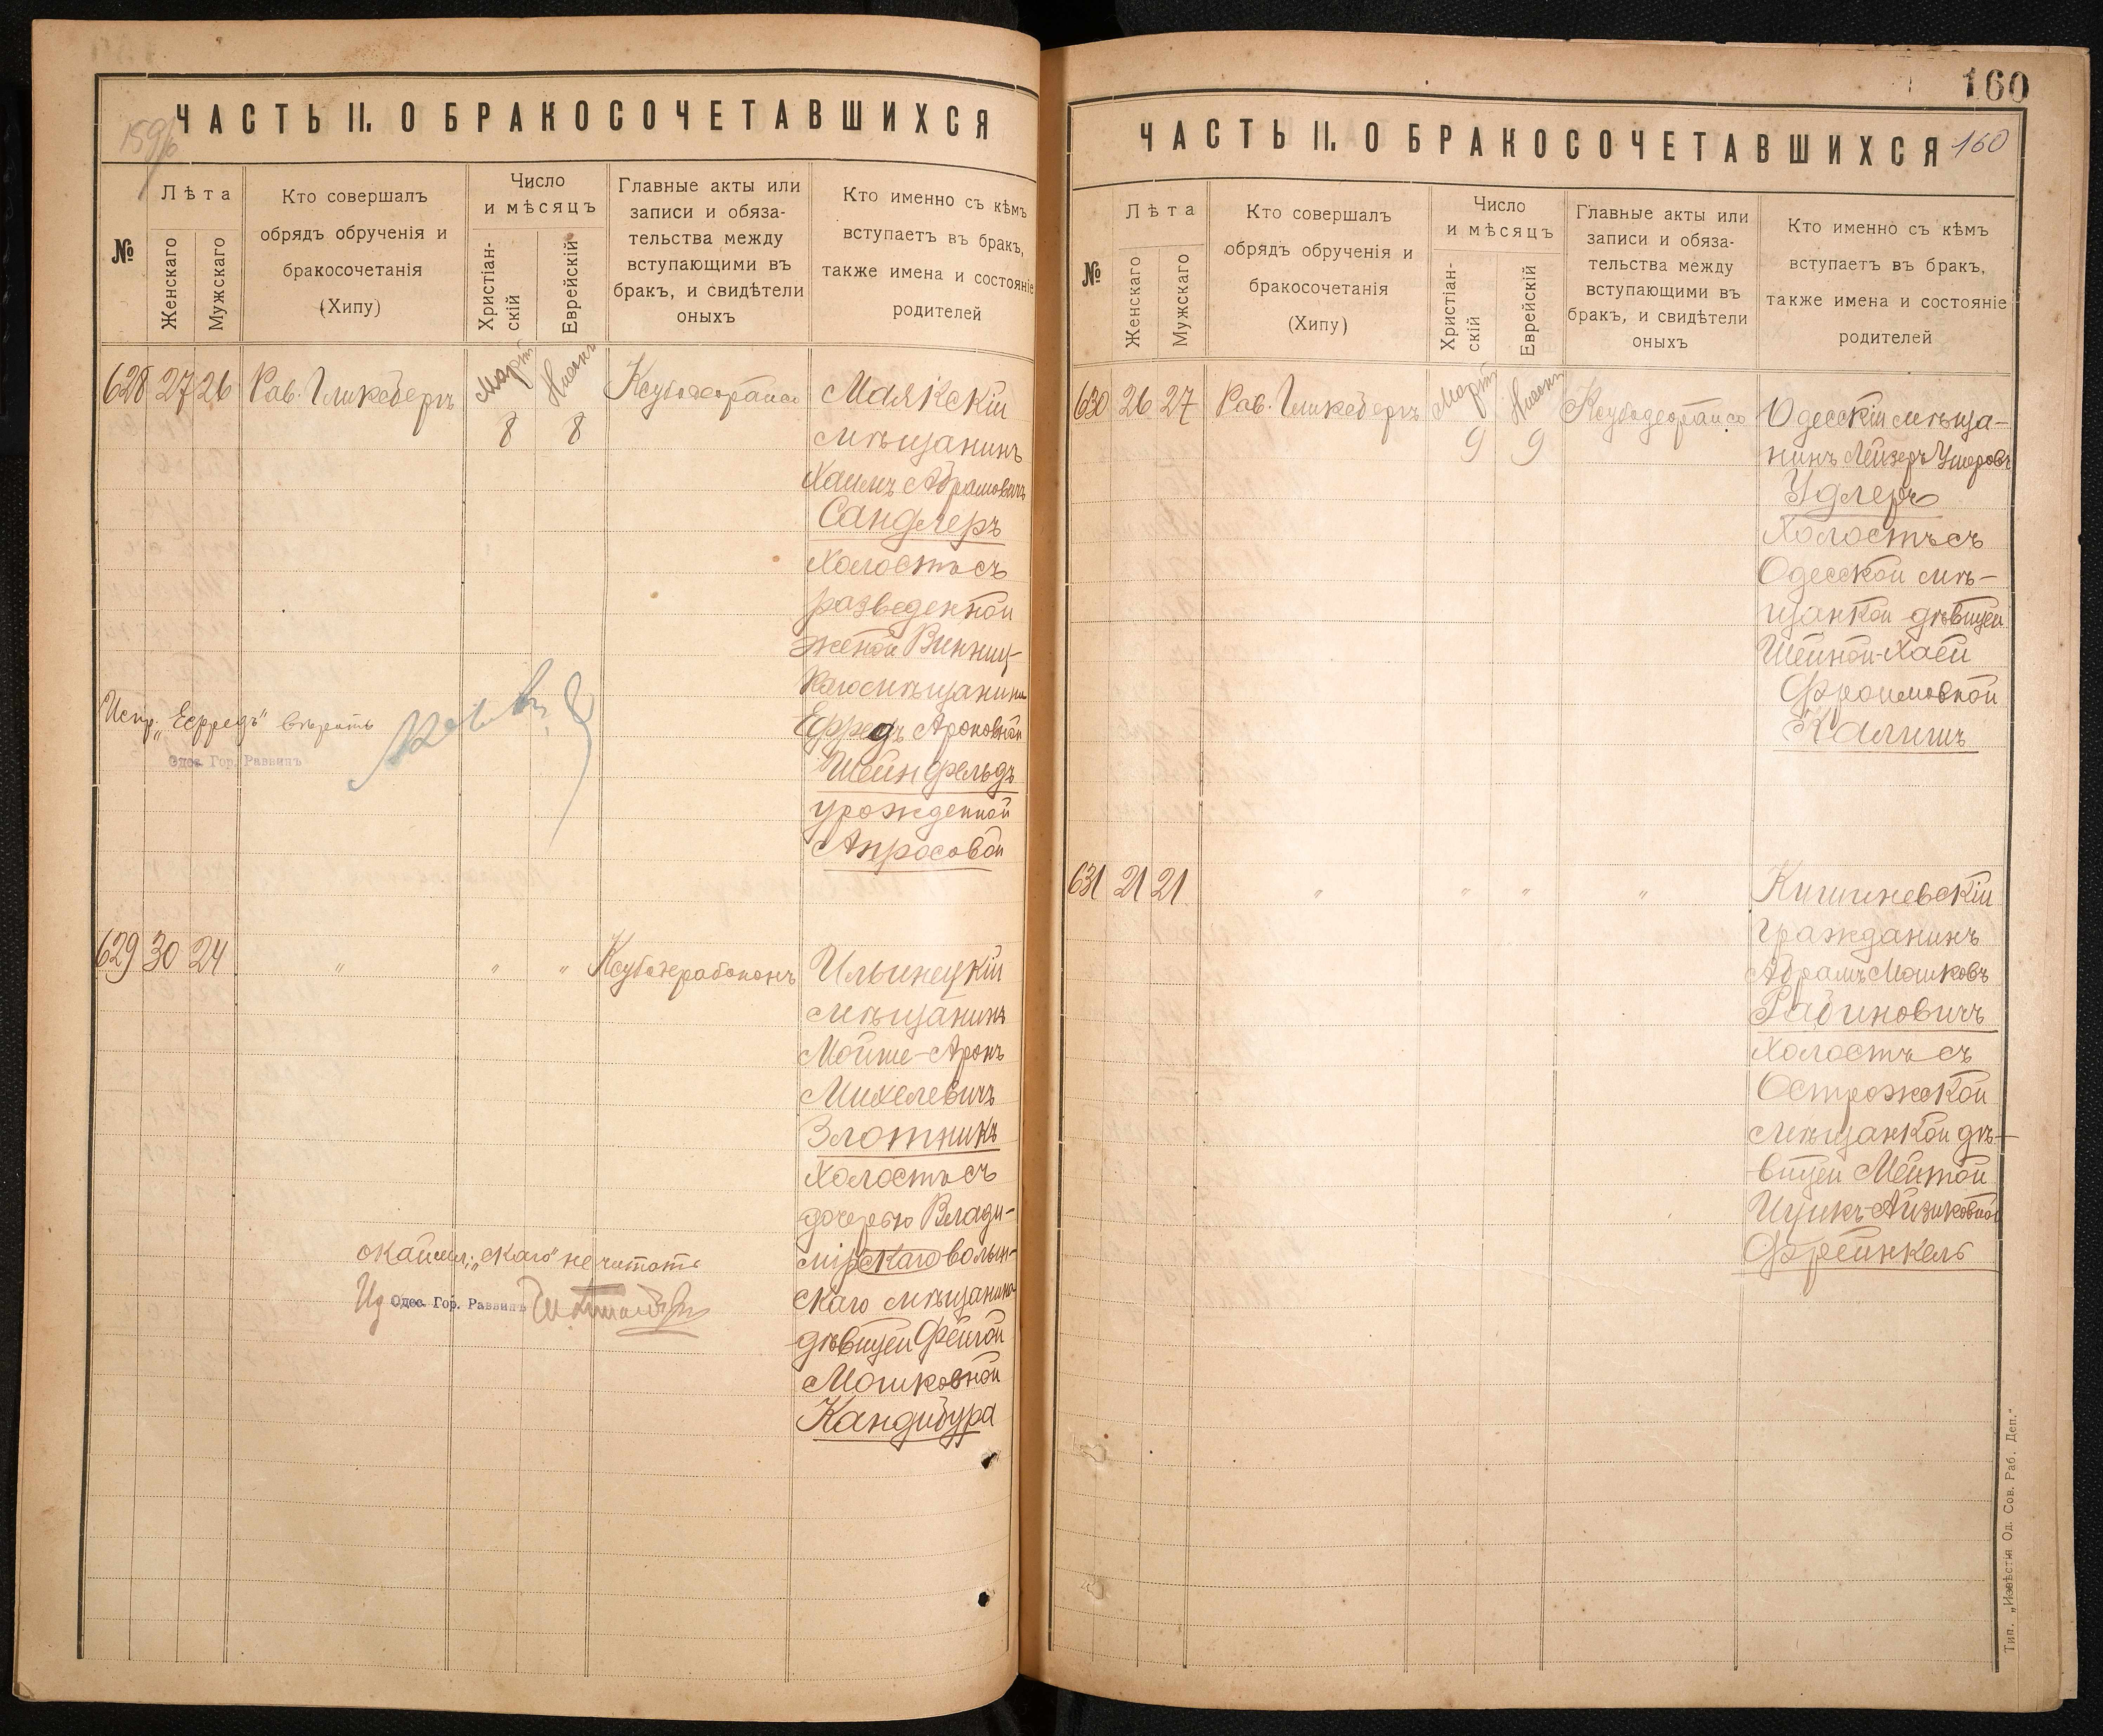 ЧАСТЬ II. О БРАКОСОЧЕТАВШИХСЯ
159
№
Лѣта
Женскаго
Мужскаго
Кто совершалъ
обрядъ обрученія и
бракосочетанія
(Хипу)
Число
и мѣсяцъ
Христіан-
скій
Еврейскій
Главные акты или
записи и обяза-
тельства между
вступающими въ
бракъ, и свидѣтели
оныхъ
Кто именно съ кѣмъ
вступаетъ въ бракъ,
также имена и состояніе
родителей
628 27 26 Рав. Гликсбергъ
Мартъ
8
Нисонъ
8
Маякскій
мѣщанинъ
Хаимъ Абрамовичъ
Сандлеръ
холостъ съ
разведенной
женой Винниц-
каго мѣщанина
Ефредъ Ароновной
Шейнфельдъ
урожденной
Апросовой
Испр. „Ефредъ" вѣрить
Одес. Гор. Раввинъ
629 30 24 " " "
Ильинецкій
мѣщанинъ
Мойше-Аронъ
Михелевичъ
Злотникъ
холостъ съ
дочерью Влади-
мірскаго волын-
скаго мѣщанина
дѣвицей Фейгой
Мошковной
Кандибура
окаймл. „скаго" не читать
Ид Одес. Гор. Раввинъ
160
ЧАСТЬ II. О БРАКОСОЧЕТАВШИХСЯ
160
№
Лѣта
Женскаго
Мужскаго
Кто совершалъ
обрядъ обрученія и
бракосочетанія
(Хипу)
Число
и мѣсяцъ
Христіан-
скій
Еврейскій
Главные акты или
записи и обяза-
тельства между
вступающими въ
бракъ, и свидѣтели
оныхъ
Кто именно съ кѣмъ
вступаетъ въ бракъ,
также имена и состояніе
родителей
630 26 27 Рав. Гликсбергъ
Мартъ
9
Нисонъ
9
Одесскій мѣща-
нинъ Лейзеръ Ушеровъ
Удлеръ
холостъ съ
Одесской мѣ-
щанкой дѣвицей
Шейной-Хаей
Фроимовной
Калишъ
631 21 21 " " " "
Кишиневскій
гражданинъ
Абрамъ Мошковъ
Рабиновичъ
холостъ съ
Острожской
мѣщанкой дѣ-
вицей Мейтой
Ицикъ-Айзиковной
Френкель
Тип. „Извѣстія Од. Сов. Раб. Деп."